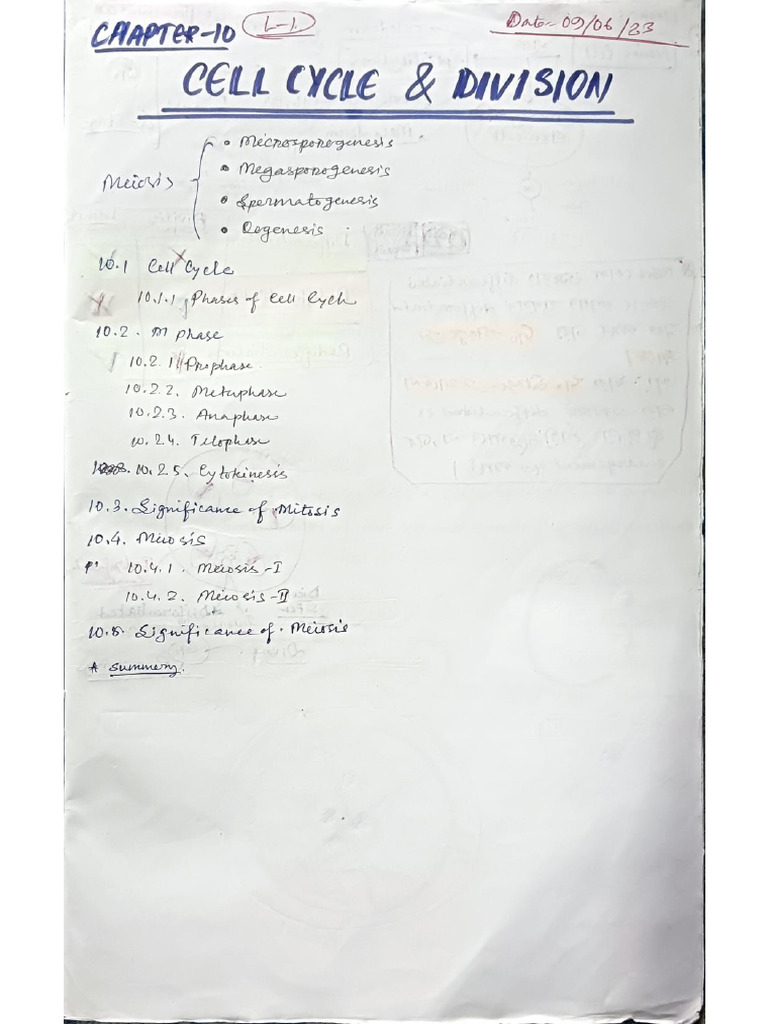 CHAPTER-10 L-1. Date:- 09/06/23
CELL CYCLE & DIVISION
Meiosis
• Microsporogenesis
• Megasporogenesis
• Spermatogenesis
• Oogenesis
10.1 Cell Cycle
10.1.1 Phases of Cell Cycle
10.2. M phase
10.2.1 Prophase
10.2.2. Metaphase
10.2.3. Anaphase
10.2.4. Telophase
10.2.5. Cytokinesis
10.3. Significance of Mitosis
10.4. Miosis
10.4.1. Meiosis-I
10.4.2. Meiosis-II
10.5. Significance of Meiosis
Summery.